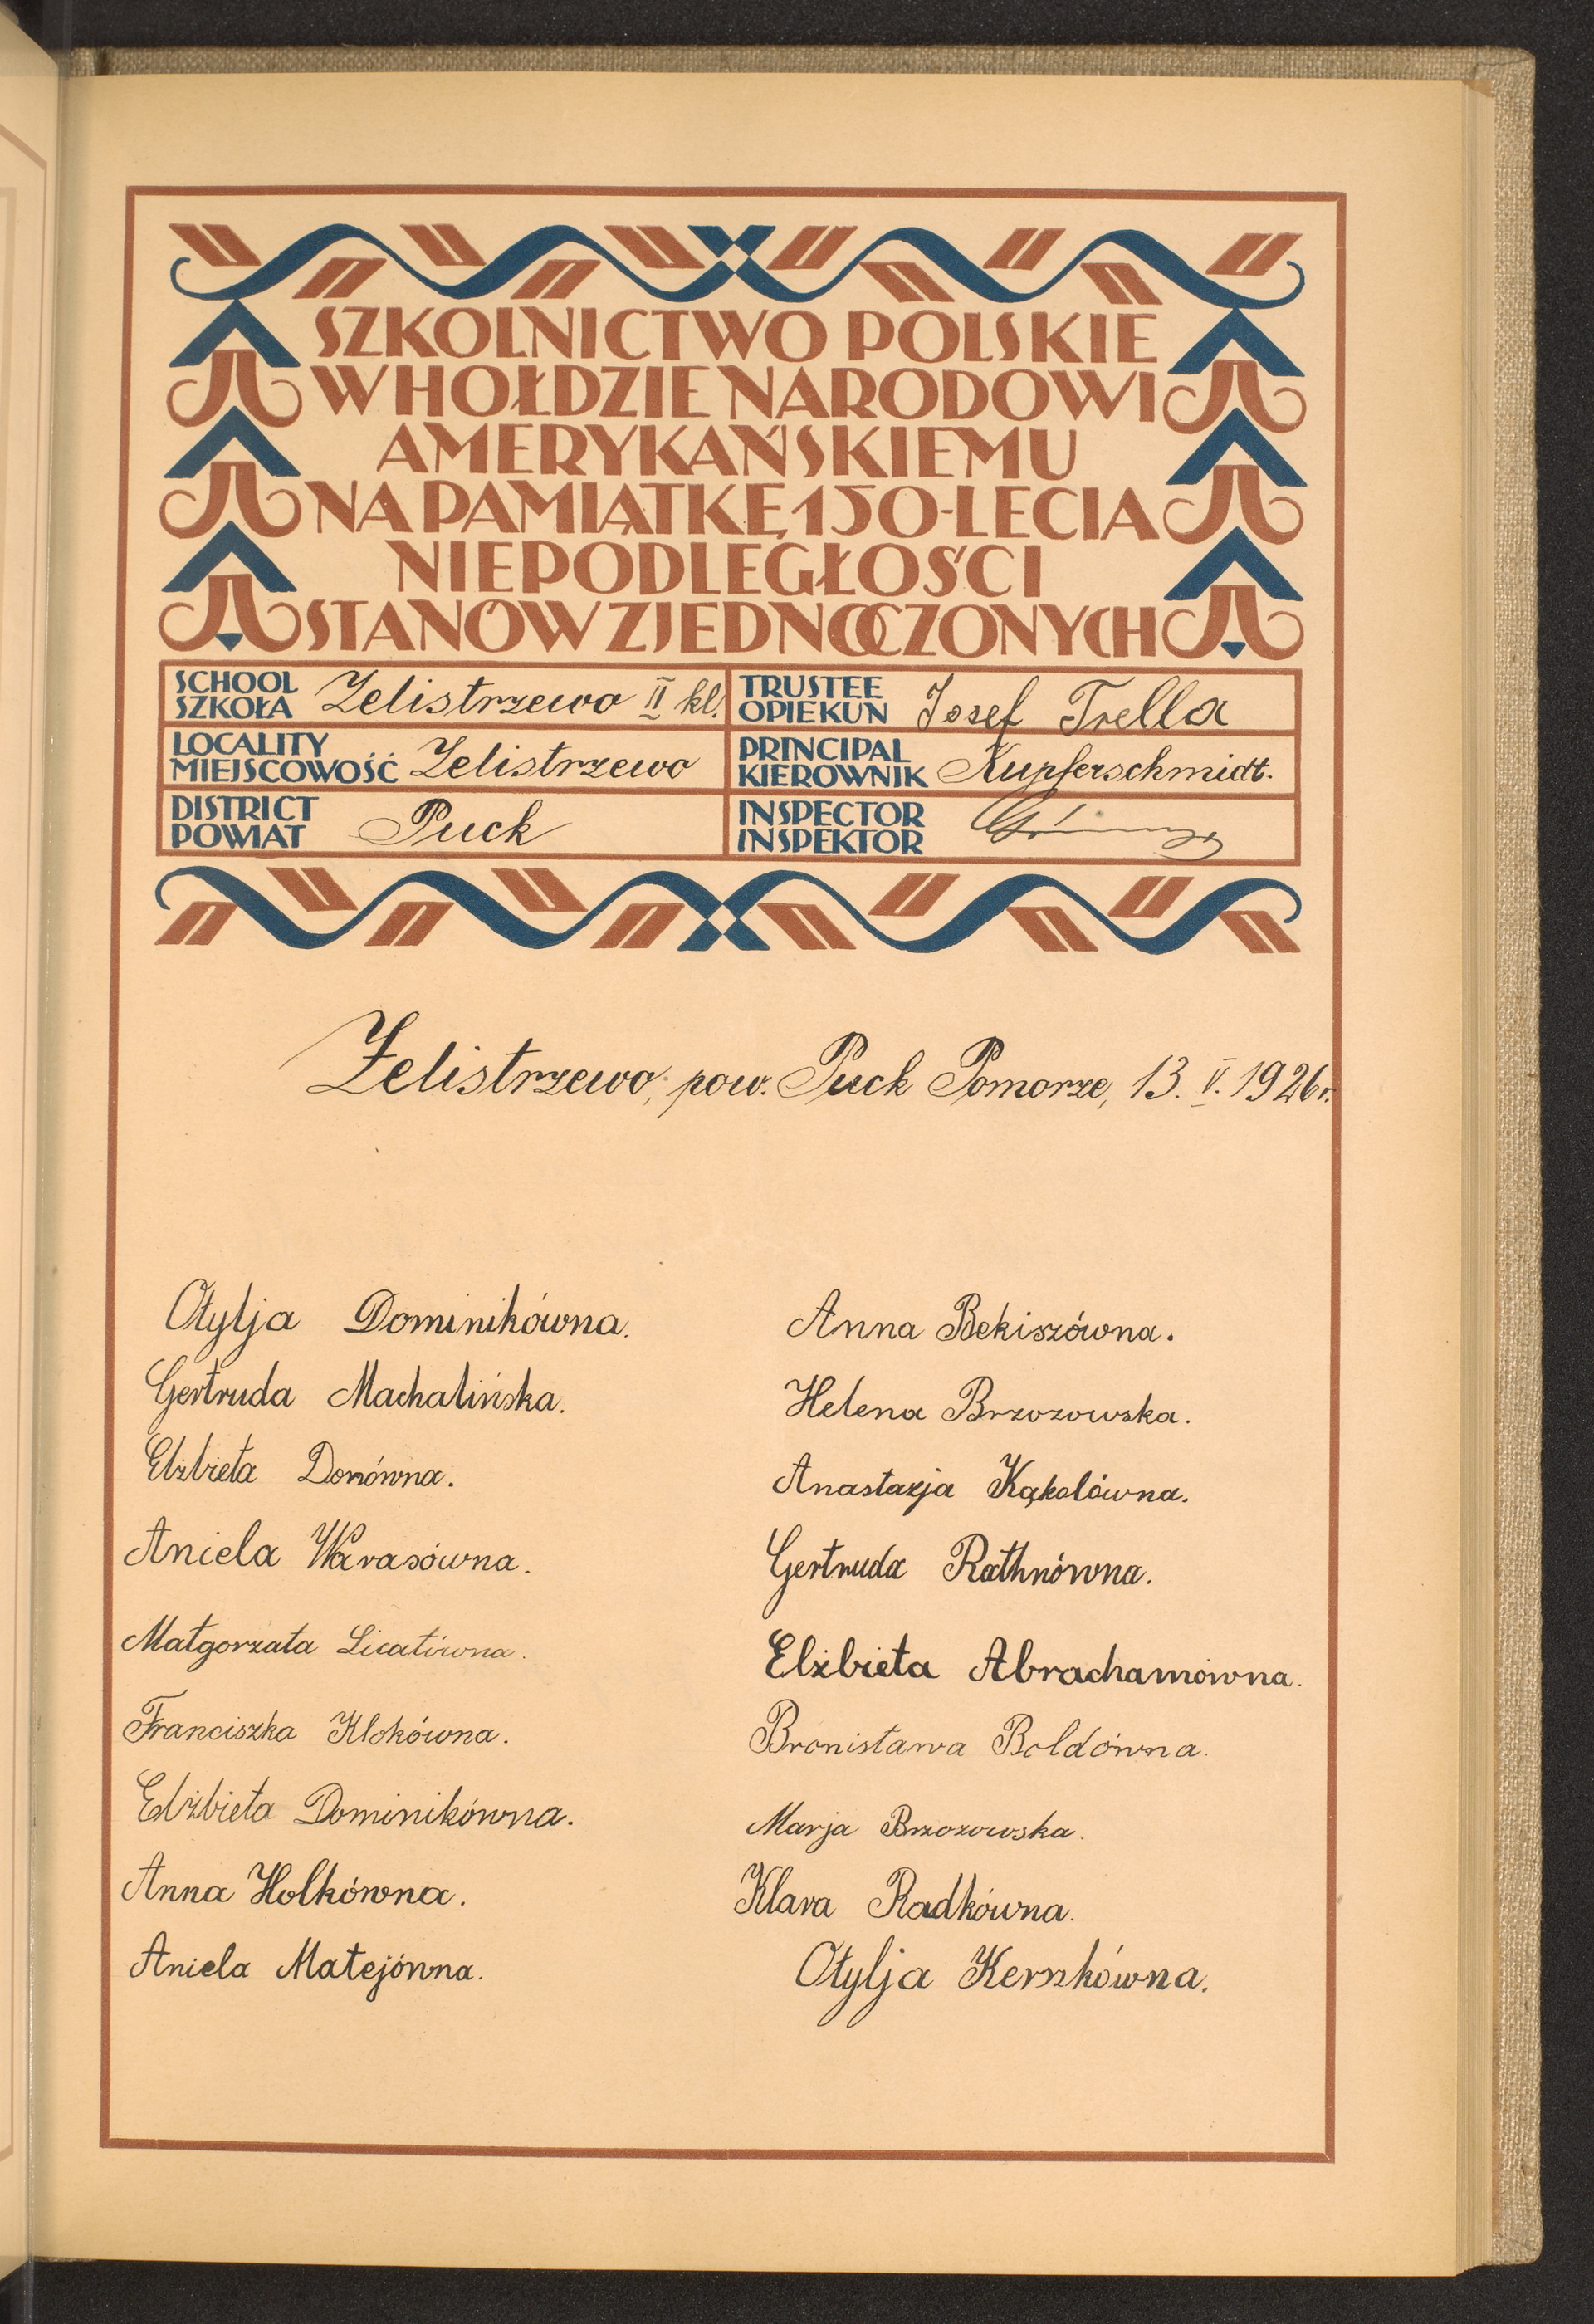 SZKOLNICTWO POLSKIE
W HOŁDZIE NARODOWI
AMERYKAŃSKIEMU
NA PAMIĄTKĘ 150-LECIA
NIEPODLEGŁOŚCI
STANÓW ZJEDNOCZONYCH
SCHOOL
SZKOŁA Żelistrzewo II kl.
TRUSTEE
OPIEKUN Josef Trella
LOCALITY
MIEJSCOWOŚĆ Żelistrzewo
PRINCIPAL
KIEROWNIK Kupferschmidt.
DISTRICT
POWIAT Puck
INSPECTOR
INSPEKTOR
Żelistrzewo, pow. Puck Pomorze, 13. V. 1926 r.
Otylja Dominikówna.
Gertruda Machalińska.
Elżbieta Donówna.
Aniela Warasówna.
Małgorzata Licatówna.
Franciszka Klokówna.
Elżbieta Dominikówna.
Anna Holkówna.
Aniela Matejówna.
Anna Bekiszówna.
Helena Brzozowska.
Anastazja Kąkolówna.
Gertruda Rathnówna.
Elżbieta Abrachamówna.
Bronisława Boldówna.
Marja Brzozowska.
Klara Radkówna.
Otylja Kerszkówna.